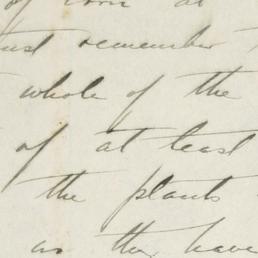 of corn at
must remember
whole of the
of at least
the plants
as they have